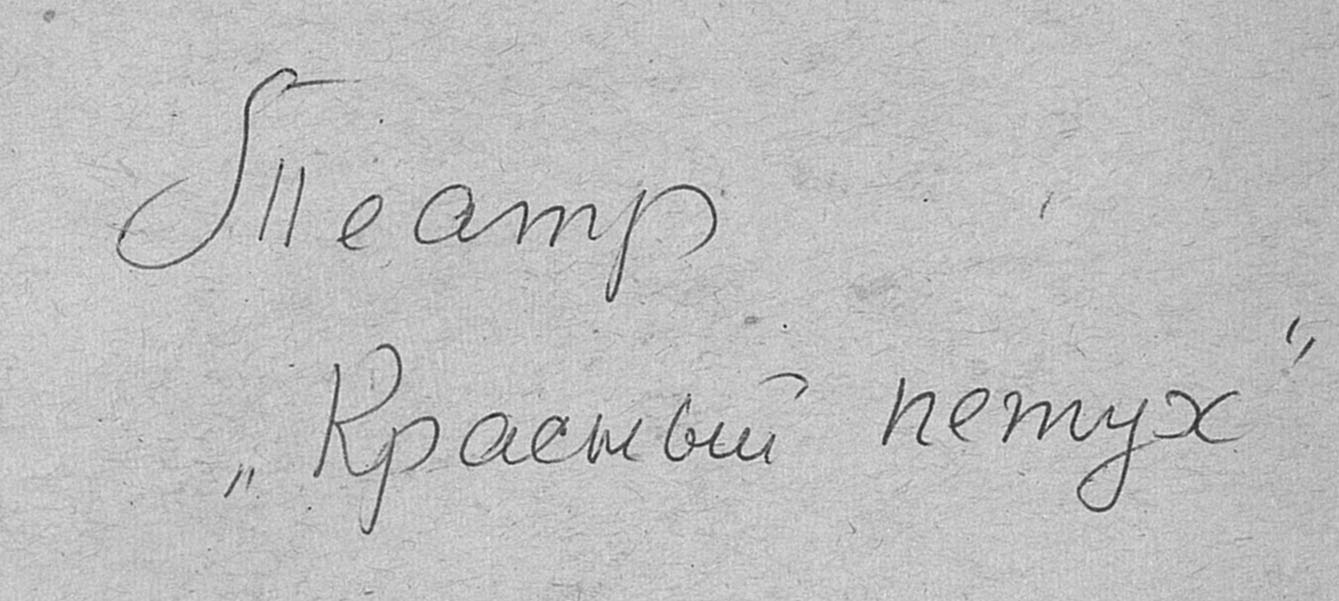 Театр
„Красный петух"